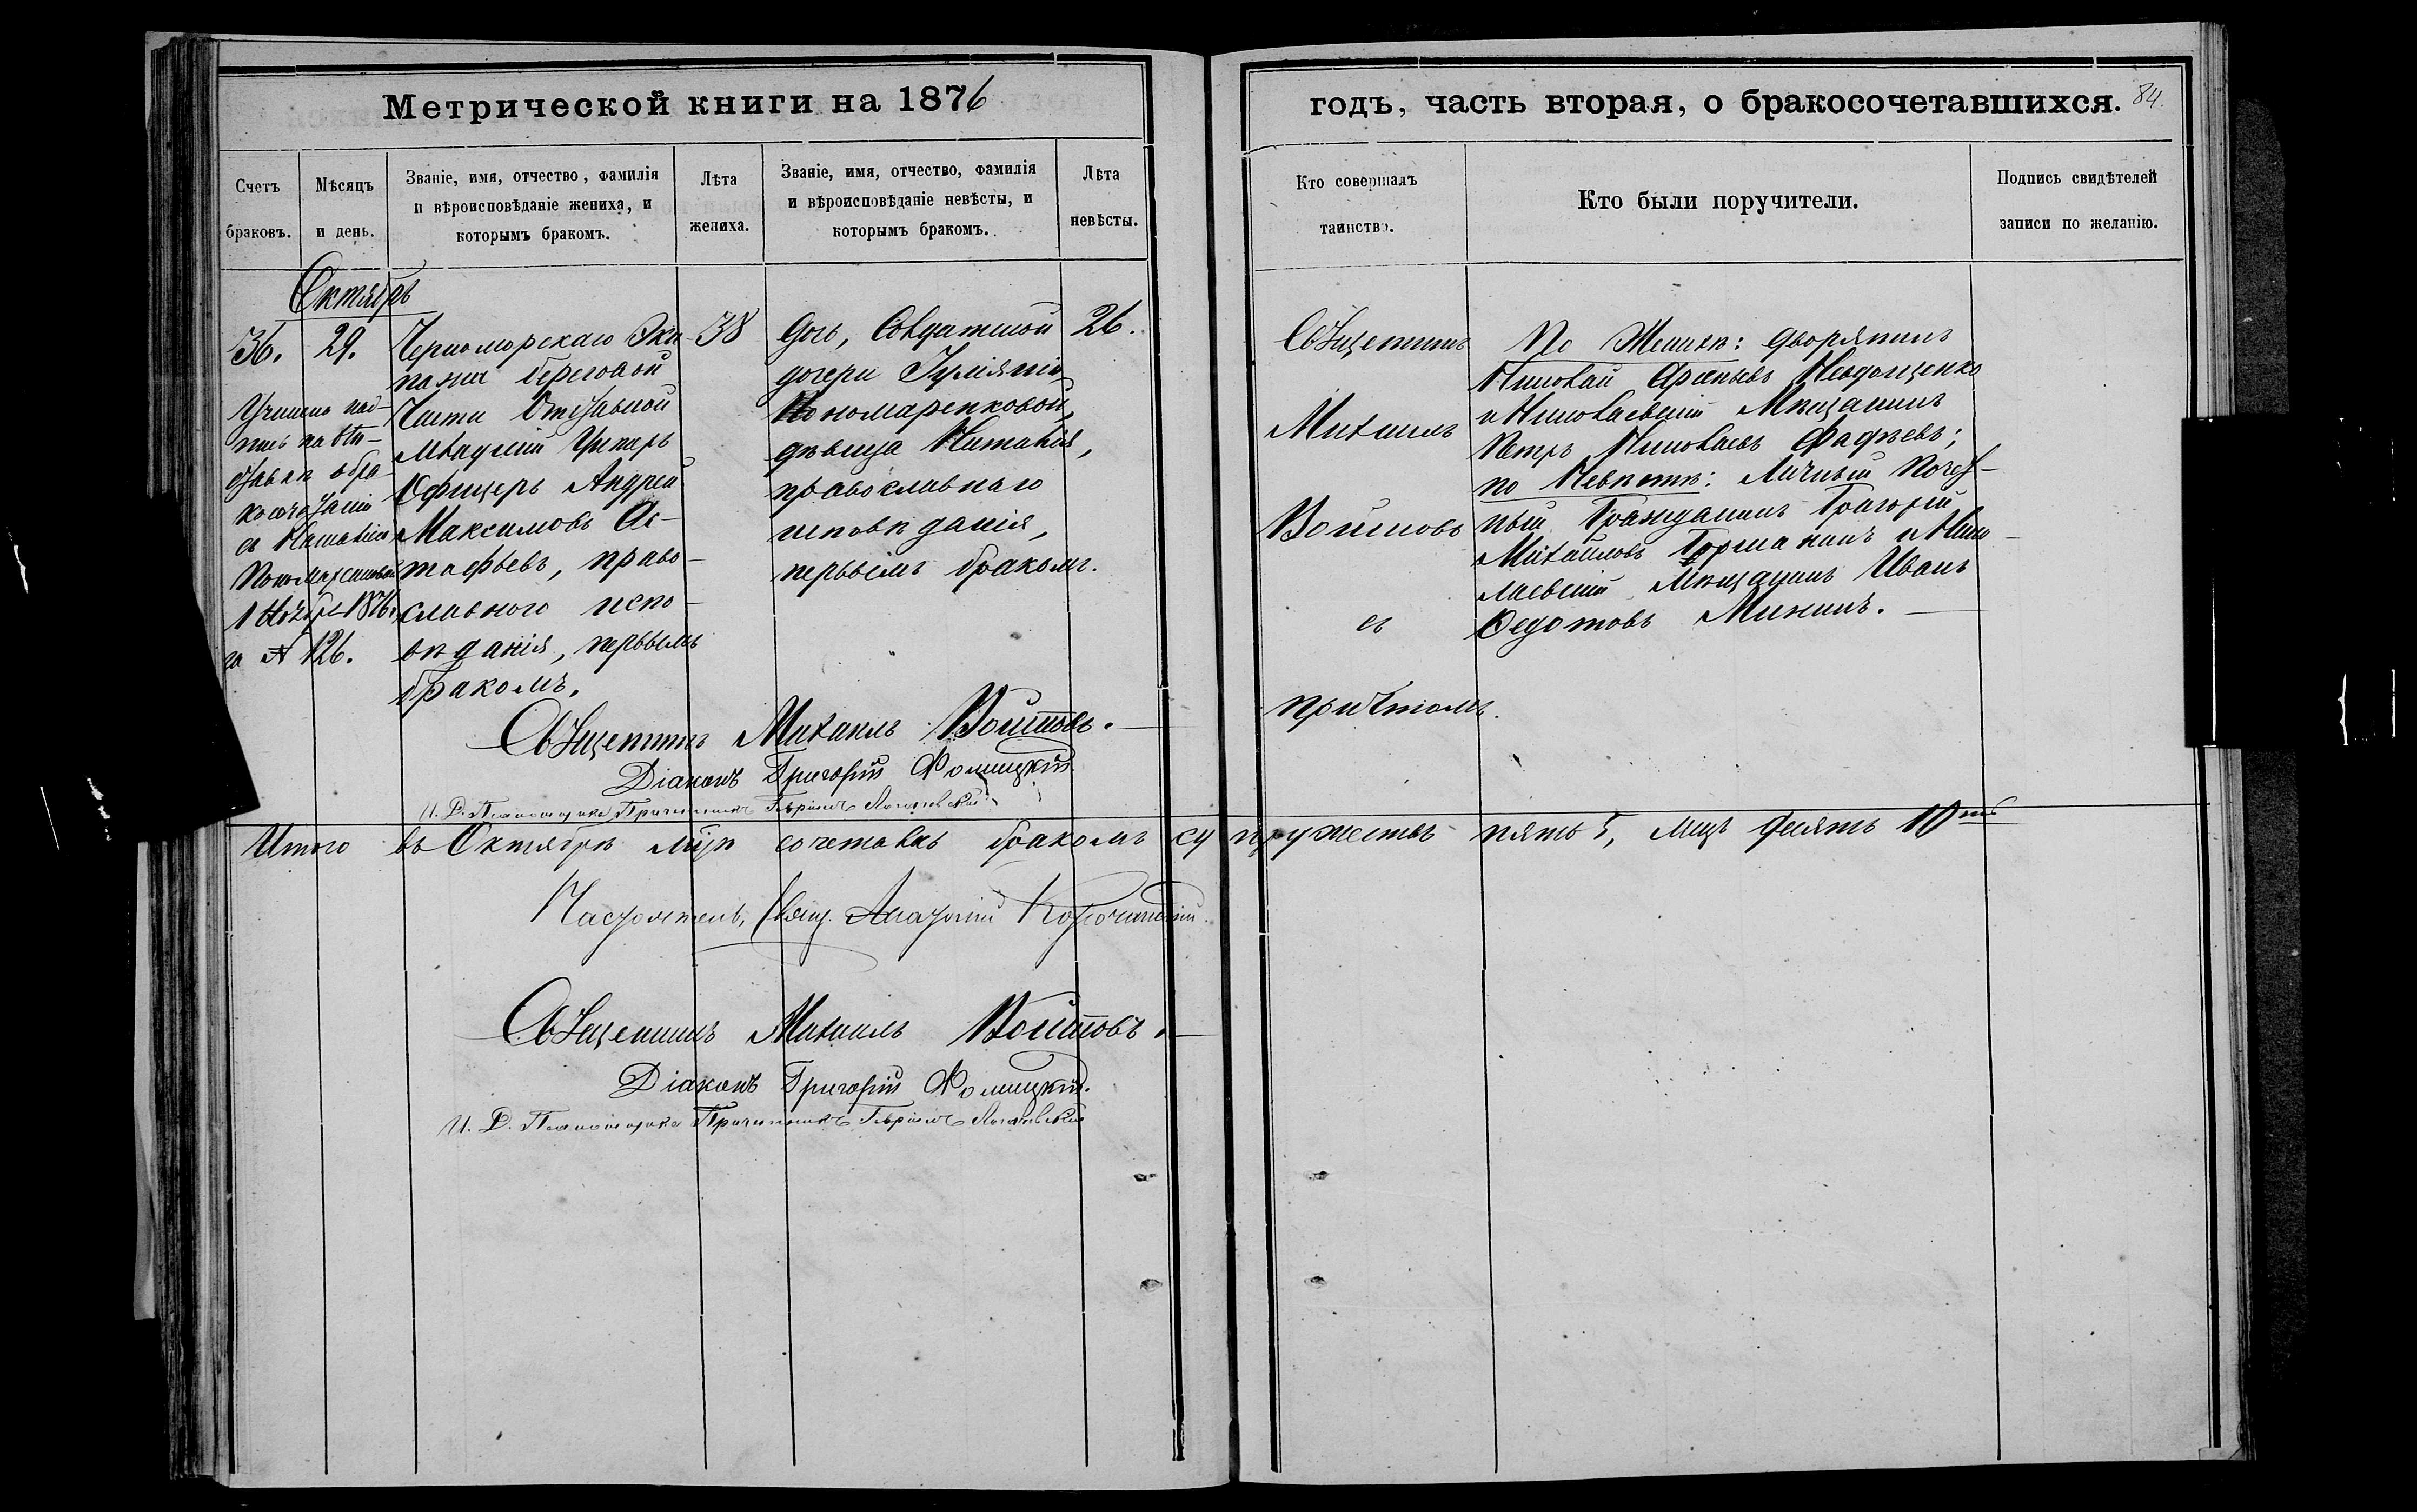 Метрической книги на 1876
годъ, часть вторая, о бракосочетавшихся. 84.
Счетъ браковъ.
Мѣсяцъ и день.
Званіе, имя, отчество, фамилія
и вѣроисповѣданіе жениха, и
которымъ бракомъ.
Лѣта жениха.
Званіе, имя, отчество, фамилія
и вѣроисповѣданіе невѣсты, и
которымъ бракомъ.
Лѣта невѣсты.
Кто совершалъ
таинство.
Кто были поручители.
Подпись свидѣтелей
записи по желанію.
Октябрь
36.
29.
Учинена над-
пись на
о бра-
косочетаніи
съ Наталіей
1876
№ 126.
Черноморскаго Эки-
пажа береговой
Части Отставной
младшій Унтеръ
Офицеръ Андрей
Максимовъ Ос-
тафьевъ, право-
славного испо-
вѣданія, первымъ
бракомъ.
38
Дочь, Солдатской
дочери Іуліяніи
Пономаренковой,
дѣвица Наталія,
православнаго
исповѣданія,
первымъ бракомъ.
26.
Священникъ
Михаилъ
Войтовъ
съ
причтомъ.
По Женихѣ: дворянинъ
Николай
и Николаевскій Мѣщанинъ
Петръ Николаевъ Фадѣевъ;
по Невѣстѣ: Личный Почет-
ный Гражданинъ Григорій
Михайловъ и Нико-
лаевскій Мѣщанинъ Иванъ
Федотовъ Мининъ.
Священникъ Михаилъ Войтовъ.
Діаконъ Григорій Фомицкій.
И. Д. Псаломщика Причетникъ
Итого въ Октябрѣ м-цѣ сочеталъ бракомъ супружествъ пять 5, лицъ десять 10ть
Настоятель, Свящ.
Священникъ Михаилъ Войтовъ.
Діаконъ Григорій Фомицкій.
И. Д. Псаломщика Причетникъ